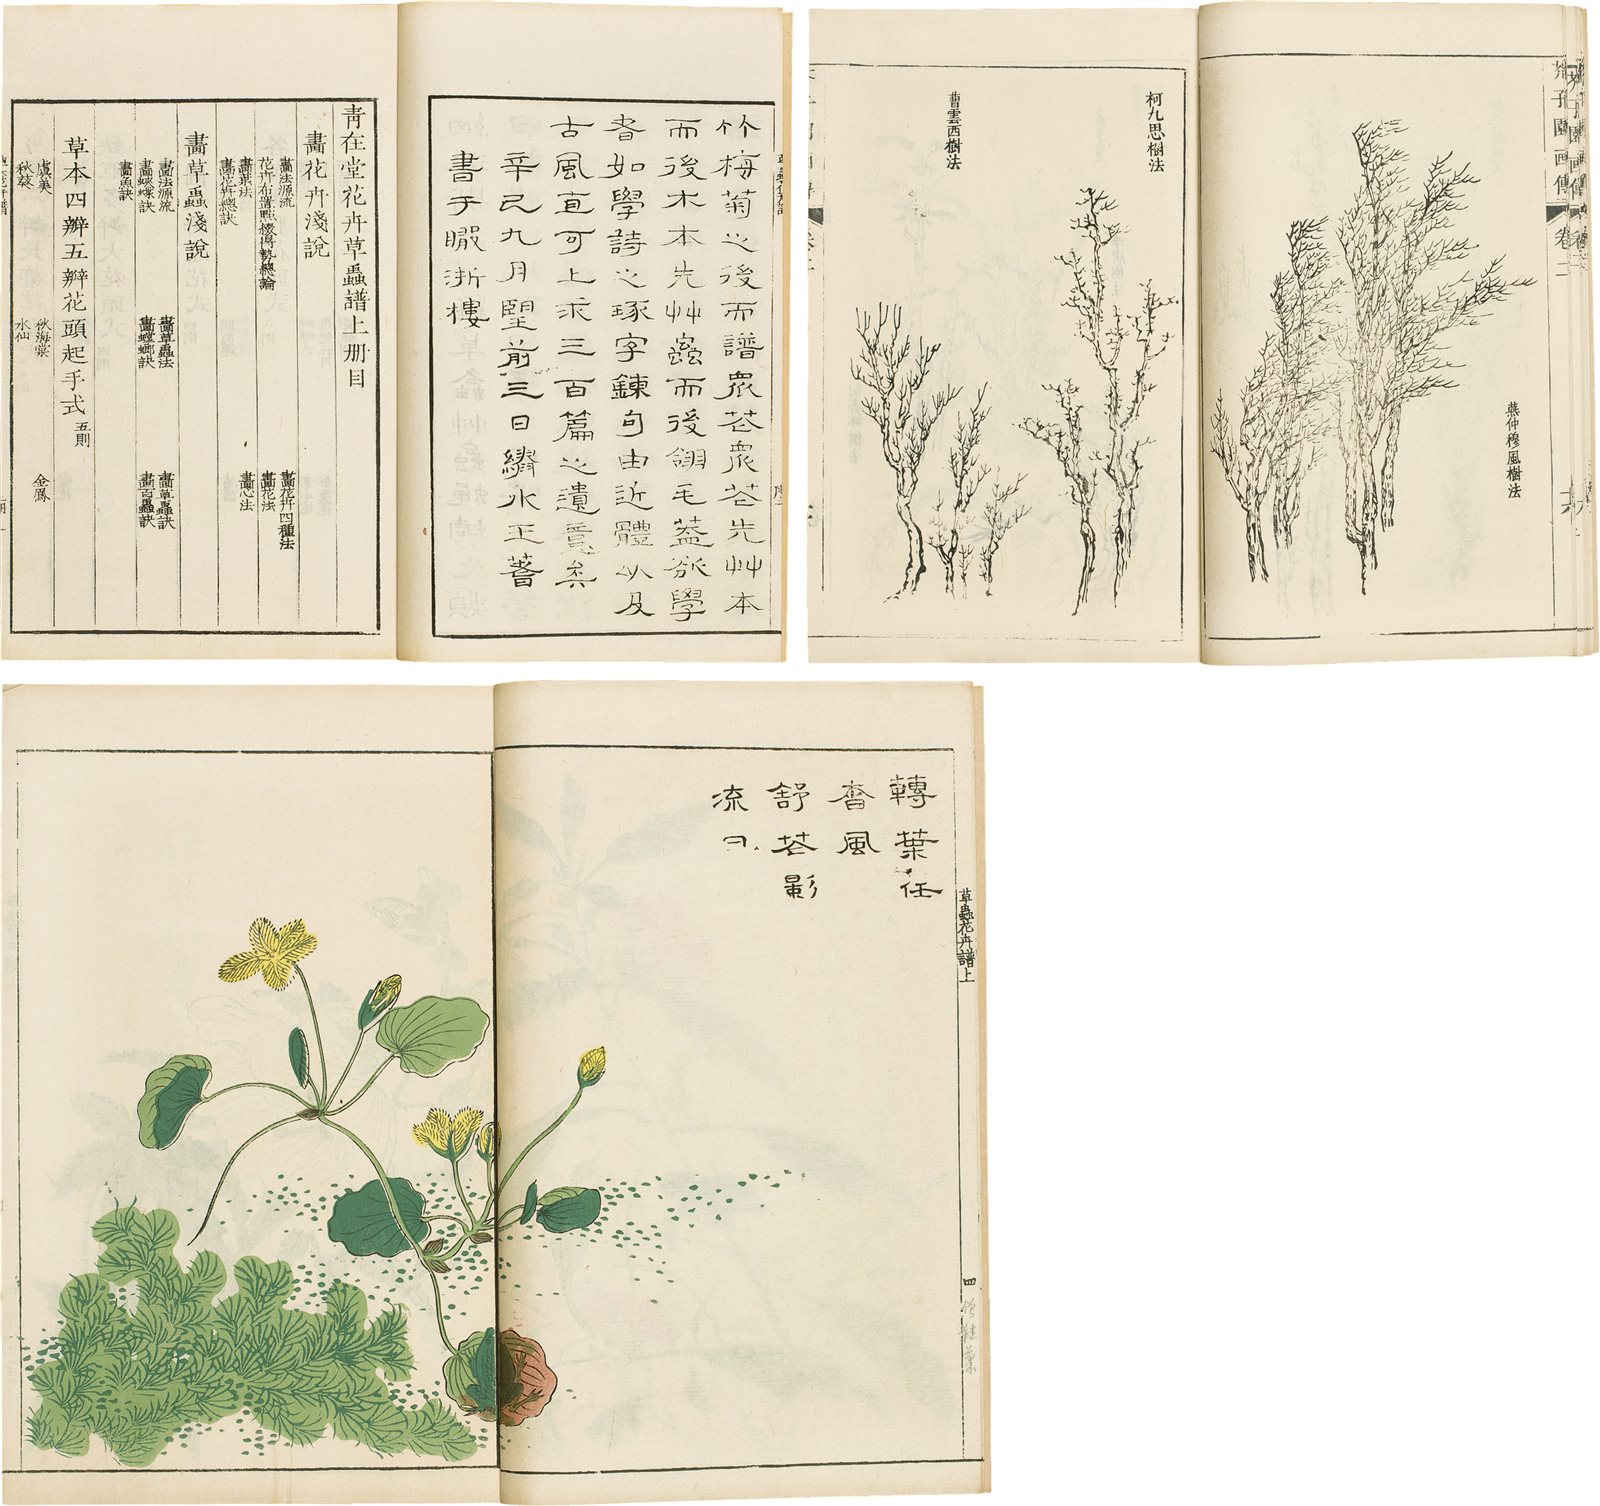 竹梅菊之後而譜眾芲眾芲先艸本
而後木本先艸蟲而後翎毛蓋欲學
者如學詩之琢字鍊句由近體以及
古風直可上求三百篇之遺意矣
辛巳九月朢前三日繡水王蓍
書于瞰浙樓
靑在堂花卉草蟲譜上册目
畫花卉淺說
畫法源流 畫花卉四種法
花卉布置點綴得勢總論 畫花法
畫葉法 畫心法
畫花卉總訣
畫草蟲淺說
畫法源流 畫草蟲法 畫草蟲訣
畫蛺蝶訣 畫螳螂訣 畫百蟲訣
畫魚訣
草本四瓣五瓣花頭起手式五則
虞美 秋海棠 金鳳
秋葵 水仙
芥子園画傳 卷二
燕仲穆風樹法
柯九思樹法
曹雲西樹法
轉葉任
香風
舒芲影
流日
草蟲花卉譜上
四